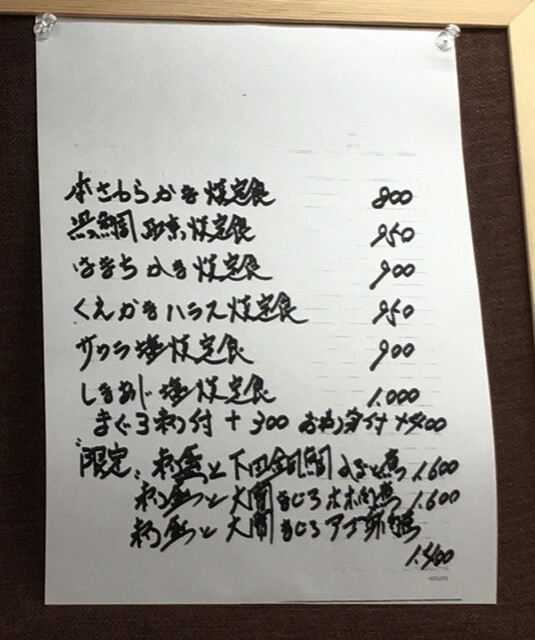 本さわらかま焼定食 800
黒鯛西京焼定食 950
はまちかま焼定食 900
くえかまハラス焼定食 950
サワラ塩焼定食 900
しまあじ塩焼定食 1.000
まぐろ刺付 +300 お刺身付 +400
"限定" 刺盛と下田金目鯛 煮 1.600
刺盛と大間まぐろホホ肉 1.600
刺盛と大間まぐろアゴ
1.400